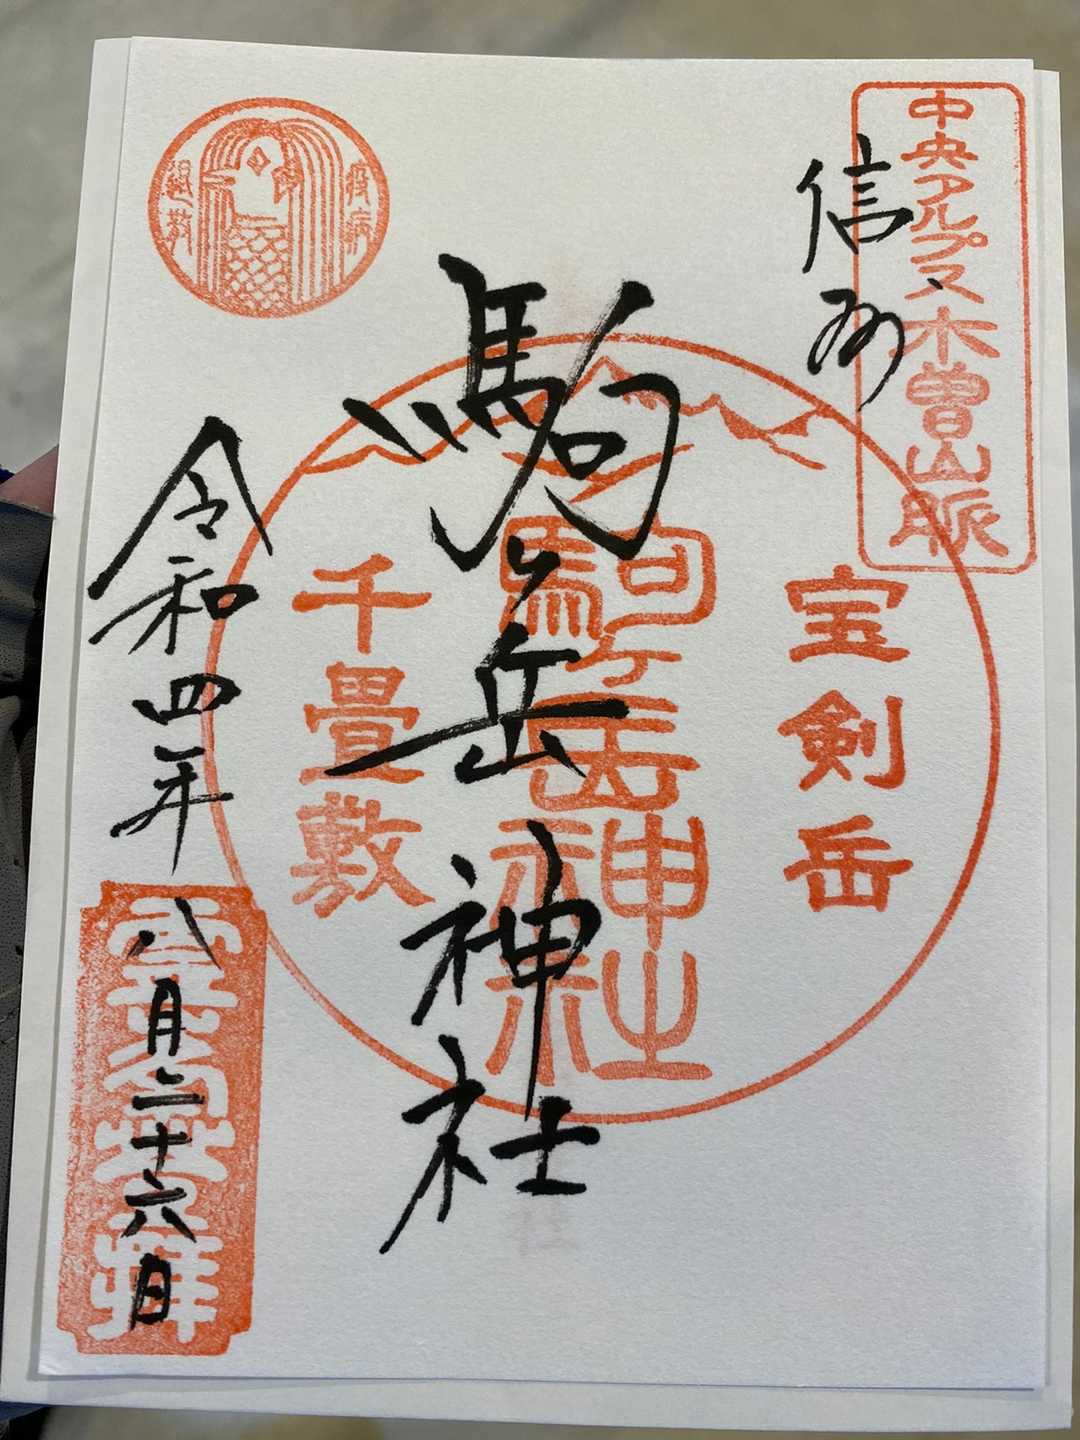 中央アルプス木曽山脈
信州
宝剣岳
駒ヶ岳神社
駒ヶ岳神社
千畳敷
疫病
退散
令和四年
八月二十六日